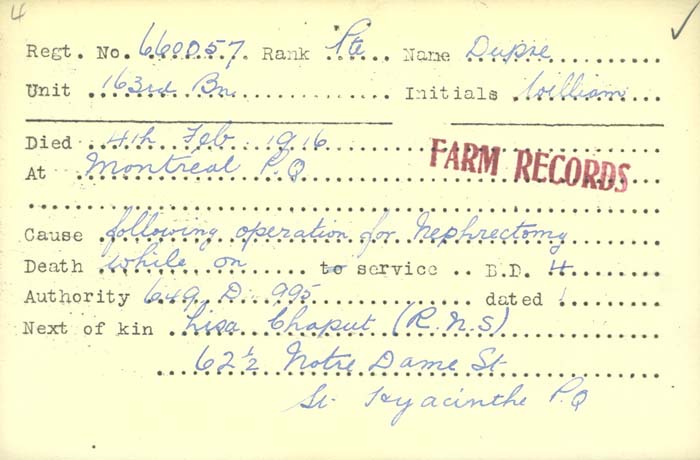 4
Regt. No. 660057 Rank Pte Name Dupre
Unit 163rd Bn. Initials William
Died 4th Feb 1916
FARM RECORDS
At Montreal P.Q
Cause following operation for Nephrectomy
Death while on to service B.D. 4
Authority 649 D. 995 dated
Next of kin Lisa Chaput (R.N.S)
62½ Notre Dame St
St Hyacinthe P.Q